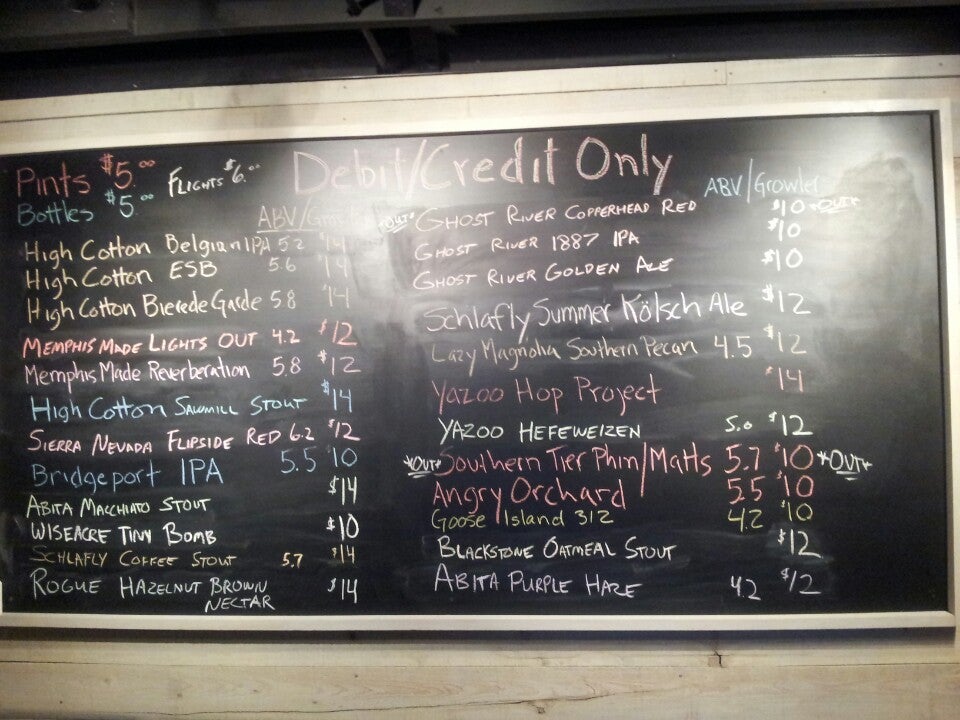 Debit/Credit Only
Pints $5.00
Flights $6.00
Bottles $5.00
ABV/Growler
High Cotton Belgian IPA 5.2 $14
High Cotton ESB 5.6 $14
High Cotton Bierede Garde 5.8 $14
Memphis Made Lights Out 4.2 $12
Memphis Made Reverberation 5.8 $12
High Cotton Sawmill Stout $14
Sierra Nevada Flipside Red 6.2 $12
Bridgeport IPA 5.5 $10
Abita Macchiato Stout $14
Wiseacre Tiny Bomb $10
Schlafly Coffee Stout 5.7 $14
Rogue Hazelnut Brown $14
Nectar
ABV/Growler
*OUT* Ghost River Copperhead Red $10 *OUT*
Ghost River 1887 IPA $10
Ghost River Golden Ale $10
Schlafly Summer Kölsch Ale $12
Lazy Magnolia Southern Pecan 4.5 $12
Yazoo Hop Project $14
Yazoo Hefeweizen 5.0 $12
*OUT* Southern Tier Phin/Matts 5.7 $10 *OUT*
Angry Orchard 5.5 $10
Goose Island 312 4.2 $10
Blackstone Oatmeal Stout $12
Abita Purple Haze 4.2 $12